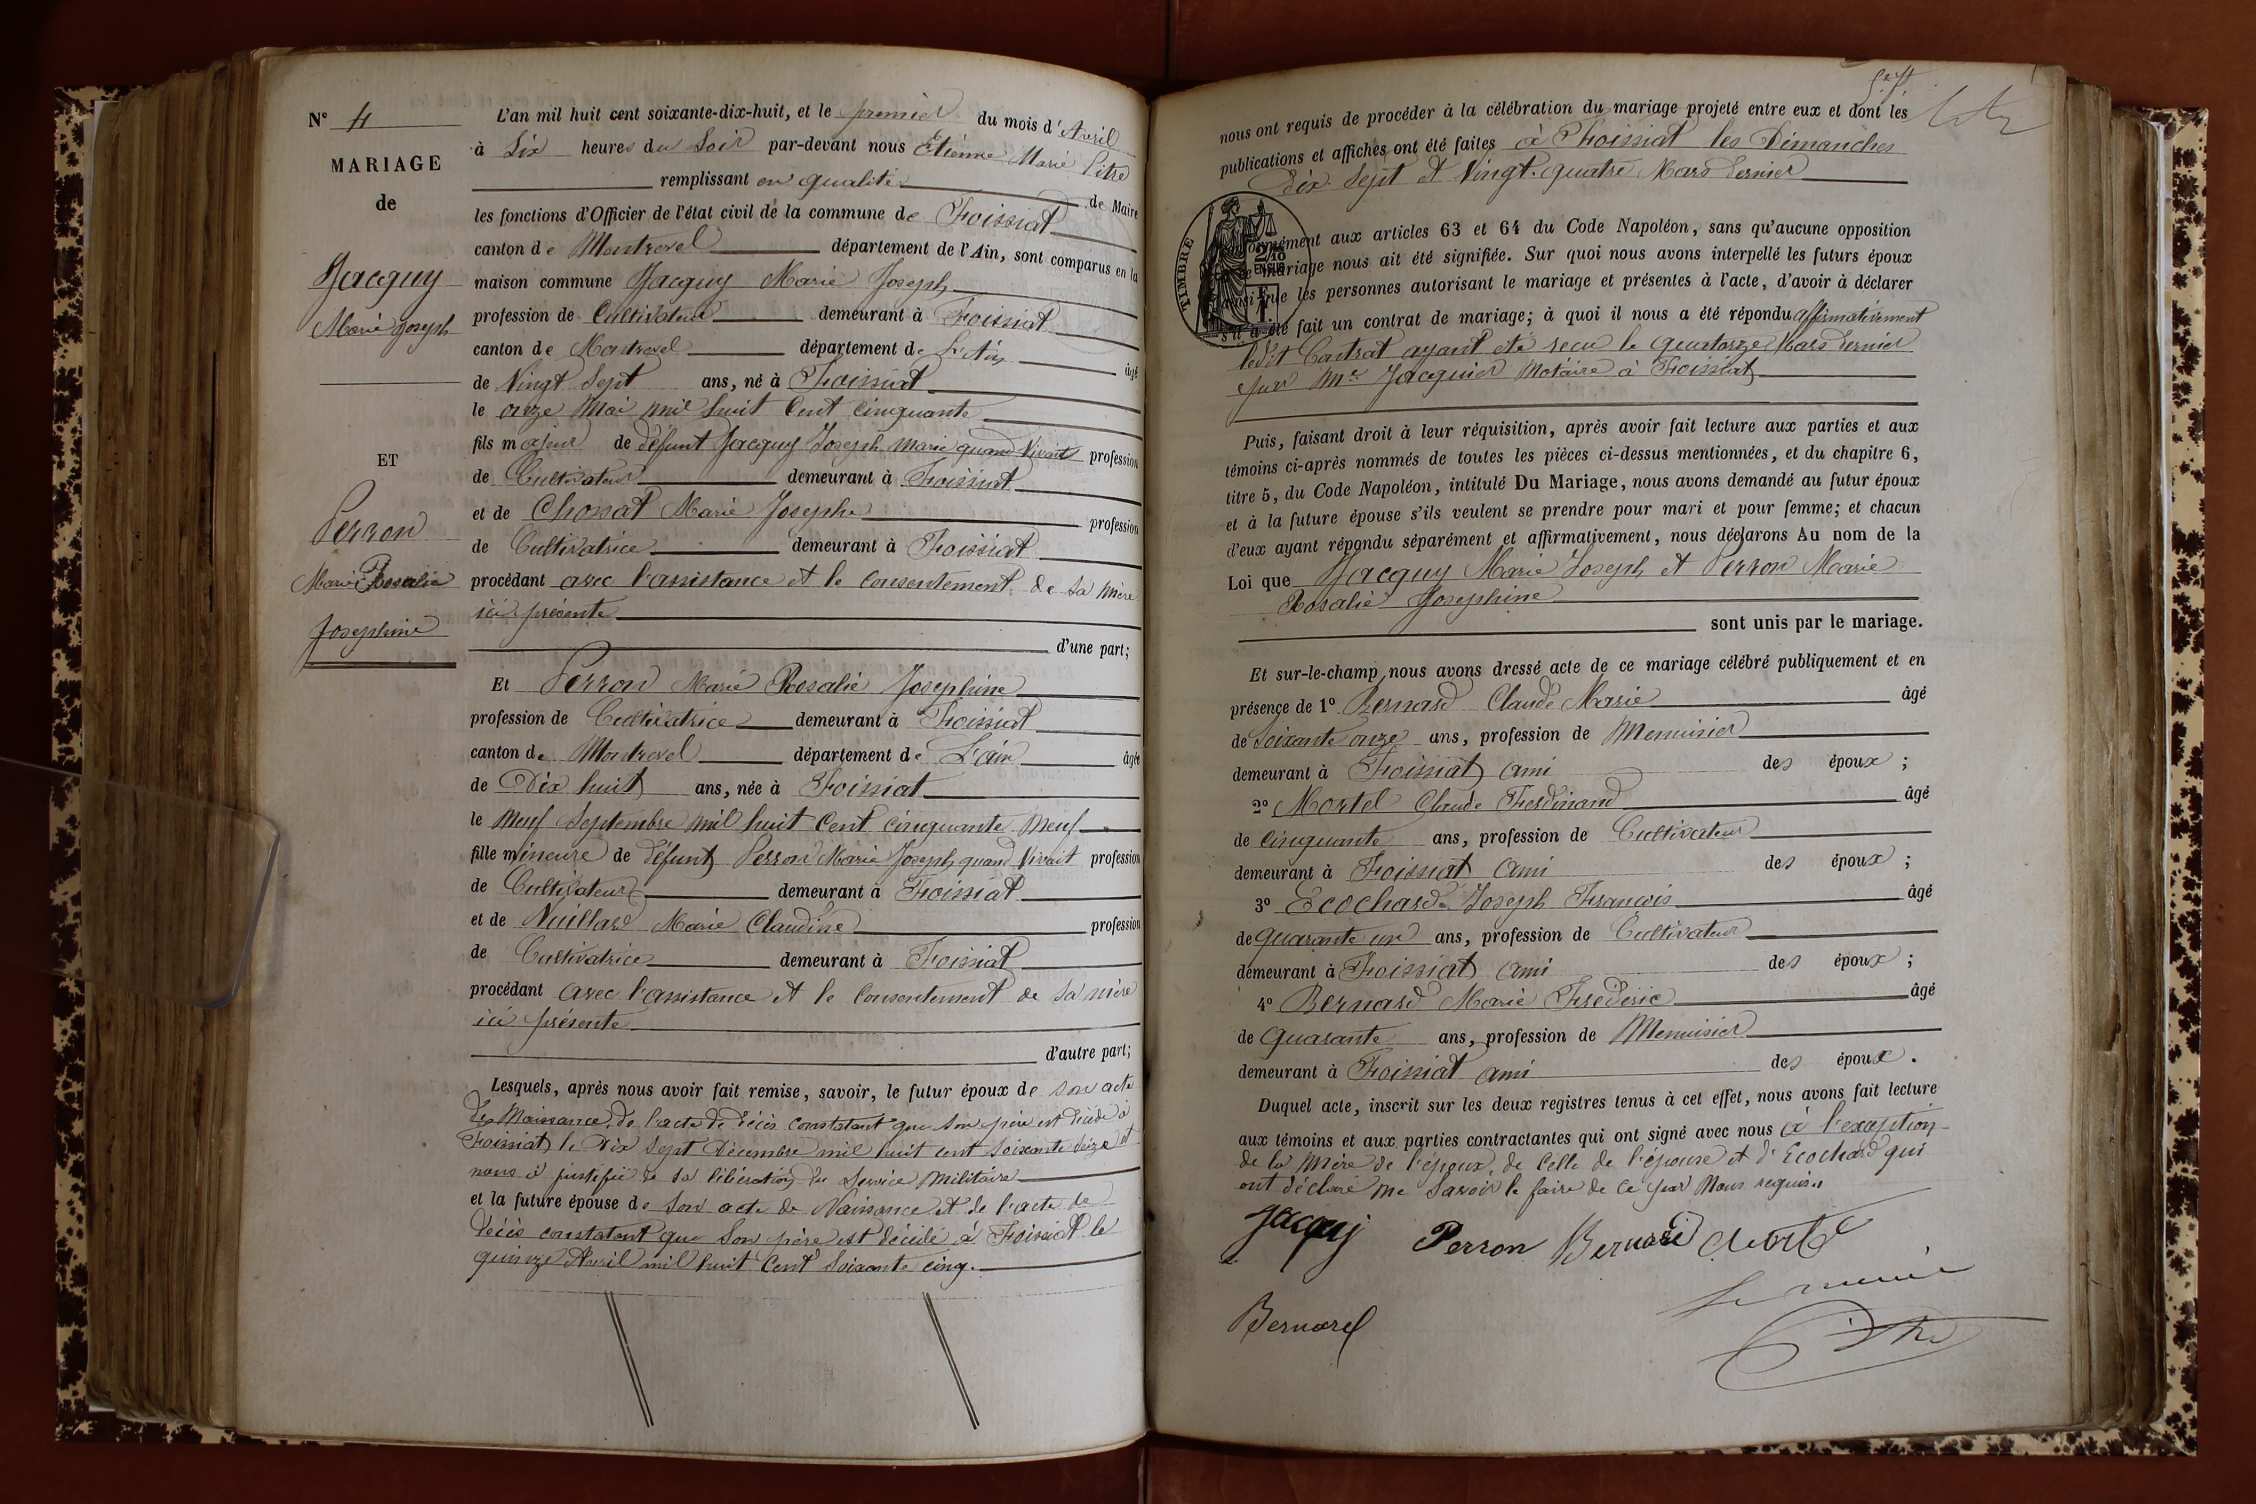 N° 4
MARIAGE
de
Jacquy
Marie Joseph
ET
Perron
Marie Rosalie
Joséphine
L'an mil huit cent soixante-dix-huit, et le premier du mois d'Avril
à Six heures du Soir par-devant nous Etienne Marie Pitre
remplissant en qualité de Maire
les fonctions d'Officier de l'état civil de la commune de Foissiat
canton de Montrevel département de l'Ain, sont comparus en la
maison commune Jacquy Marie Joseph
profession de Cultivateur demeurant à Foissiat
canton de Montrevel département de L'Ain âgé
de Vingt Sept ans, né à Foissiat
le onze Mai mil huit Cent Cinquante
fils majeur de défunt Jacquy Joseph Marie quand Vivait profession
de Cultivateur demeurant à Foissiat
et de Chossat Marie Josephe profession
de Cultivatrice demeurant à Foissiat
procédant avec l'assistance et le consentement de sa mère
ici présente
d'une part;
Et Perron Marie Rosalie Joséphine
profession de Cultivatrice demeurant à Foissiat
canton de Montrevel département de L'ain âgée
de Dix huit ans, née à Foissiat
le Neuf Septembre mil huit Cent cinquante Neuf
fille mineure de défunt Perron Marie Joseph quand Vivait profession
de Cultivateur demeurant à Foissiat
et de Nuillard Marie Claudine profession
de Cultivatrice demeurant à Foissiat
procédant avec l'assistance et le consentement de sa mère
ici présente
d'autre part;
Lesquels, après nous avoir fait remise, savoir, le futur époux de son acte
de Naissance, de l'acte de décès constatant que son père est décédé à
Foissiat le Dix Sept Décembre mil huit cent soixante seize et
nous à justifié de sa libération du Service Militaire
et la future épouse de Son acte de Naissance et de l'acte de
décès constatant que Son père est décédé à Foissiat le
quinze Avril mil huit Cent Soixante cinq.
Sept
nous ont requis de procéder à la célébration du mariage projeté entre eux et dont les
publications et affiches ont été faites à Foissiat les Dimanches
dix Sept et Vingt-quatre Mars dernier
TIMBRE
2/10
EN SUS
conformément aux articles 63 et 64 du Code Napoléon, sans qu'aucune opposition
ce mariage nous ait été signifiée. Sur quoi nous avons interpellé les futurs époux
ainsi que les personnes autorisant le mariage et présentes à l'acte, d'avoir à déclarer
s'il a été fait un contrat de mariage; à quoi il nous a été répondu affirmativement
ledit Contrat ayant été reçu le quatorze Mars dernier
par Me Jacquier Notaire à Foissiat
Puis, faisant droit à leur réquisition, après avoir fait lecture aux parties et aux
témoins ci-après nommés de toutes les pièces ci-dessus mentionnées, et du chapitre 6,
titre 5, du Code Napoléon, intitulé Du Mariage, nous avons demandé au futur époux
et à la future épouse s'ils veulent se prendre pour mari et pour femme; et chacun
d'eux ayant répondu séparément et affirmativement, nous déclarons Au nom de la
Loi que Jacquy Marie Joseph et Perron Marie
Rosalie Joséphine
sont unis par le mariage.
Et sur-le-champ nous avons dressé acte de ce mariage célébré publiquement et en
présence de 1° Bernard Claude Marie âgé
de soixante onze ans, profession de Menuisier
demeurant à Foissiat ami des époux ;
2° Mortel Claude Ferdinand âgé
de cinquante ans, profession de Cultivateur
demeurant à Foissiat ami des époux ;
3° Ecochard Joseph François âgé
de quarante un ans, profession de Cultivateur
demeurant à Foissiat ami des époux ;
4° Bernard Marie Frédéric âgé
de quarante ans, profession de Menuisier
demeurant à Foissiat ami des époux.
Duquel acte, inscrit sur les deux registres tenus à cet effet, nous avons fait lecture
aux témoins et aux parties contractantes qui ont signé avec nous à l'exception
de la Mère de l'époux, de Celle de l'épouse et d'Ecochard qui
ont déclaré ne Savoir le faire de ce par Nous requis.
Jacquy Perron Bernard
Le maire
Bernard Pitre